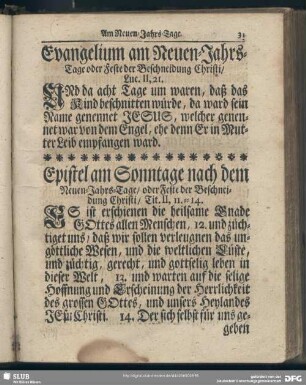 Am Neuen-Jahrs-Tage. 31
Evangelium am Neuen-Jahrs-
Tage oder Feste der Beschneidung Christi/
Luc. II, 21.
UNd da acht Tage um waren, daß das
Kind beschnitten würde, da ward sein
Name genennet JESUS, welcher genen-
net war von dem Engel, ehe denn Er in Mut-
ter Leib empfangen ward.
Epistel am Sonntage nach dem
Neuen-Jahrs-Tage/ oder Feste der Beschnei-
dung Christi/ Tit. II, 11.=14.
ES ist erschienen die heilsame Gnade
GOttes allen Menschen, 12. und züch-
tiget uns/ daß wir sollen verleugnen das un-
göttliche Wesen, und die weltlichen Lüste,
und züchtig, gerecht, und gottselig leben in
dieser Welt, 13. und warten auf die selige
Hoffnung und Erscheinung der Herrlichkeit
des grossen GOttes, und unsers Heylandes
JEsu Christi. 14. Der sich selbst für uns ge-
geben
SLUB
DFG